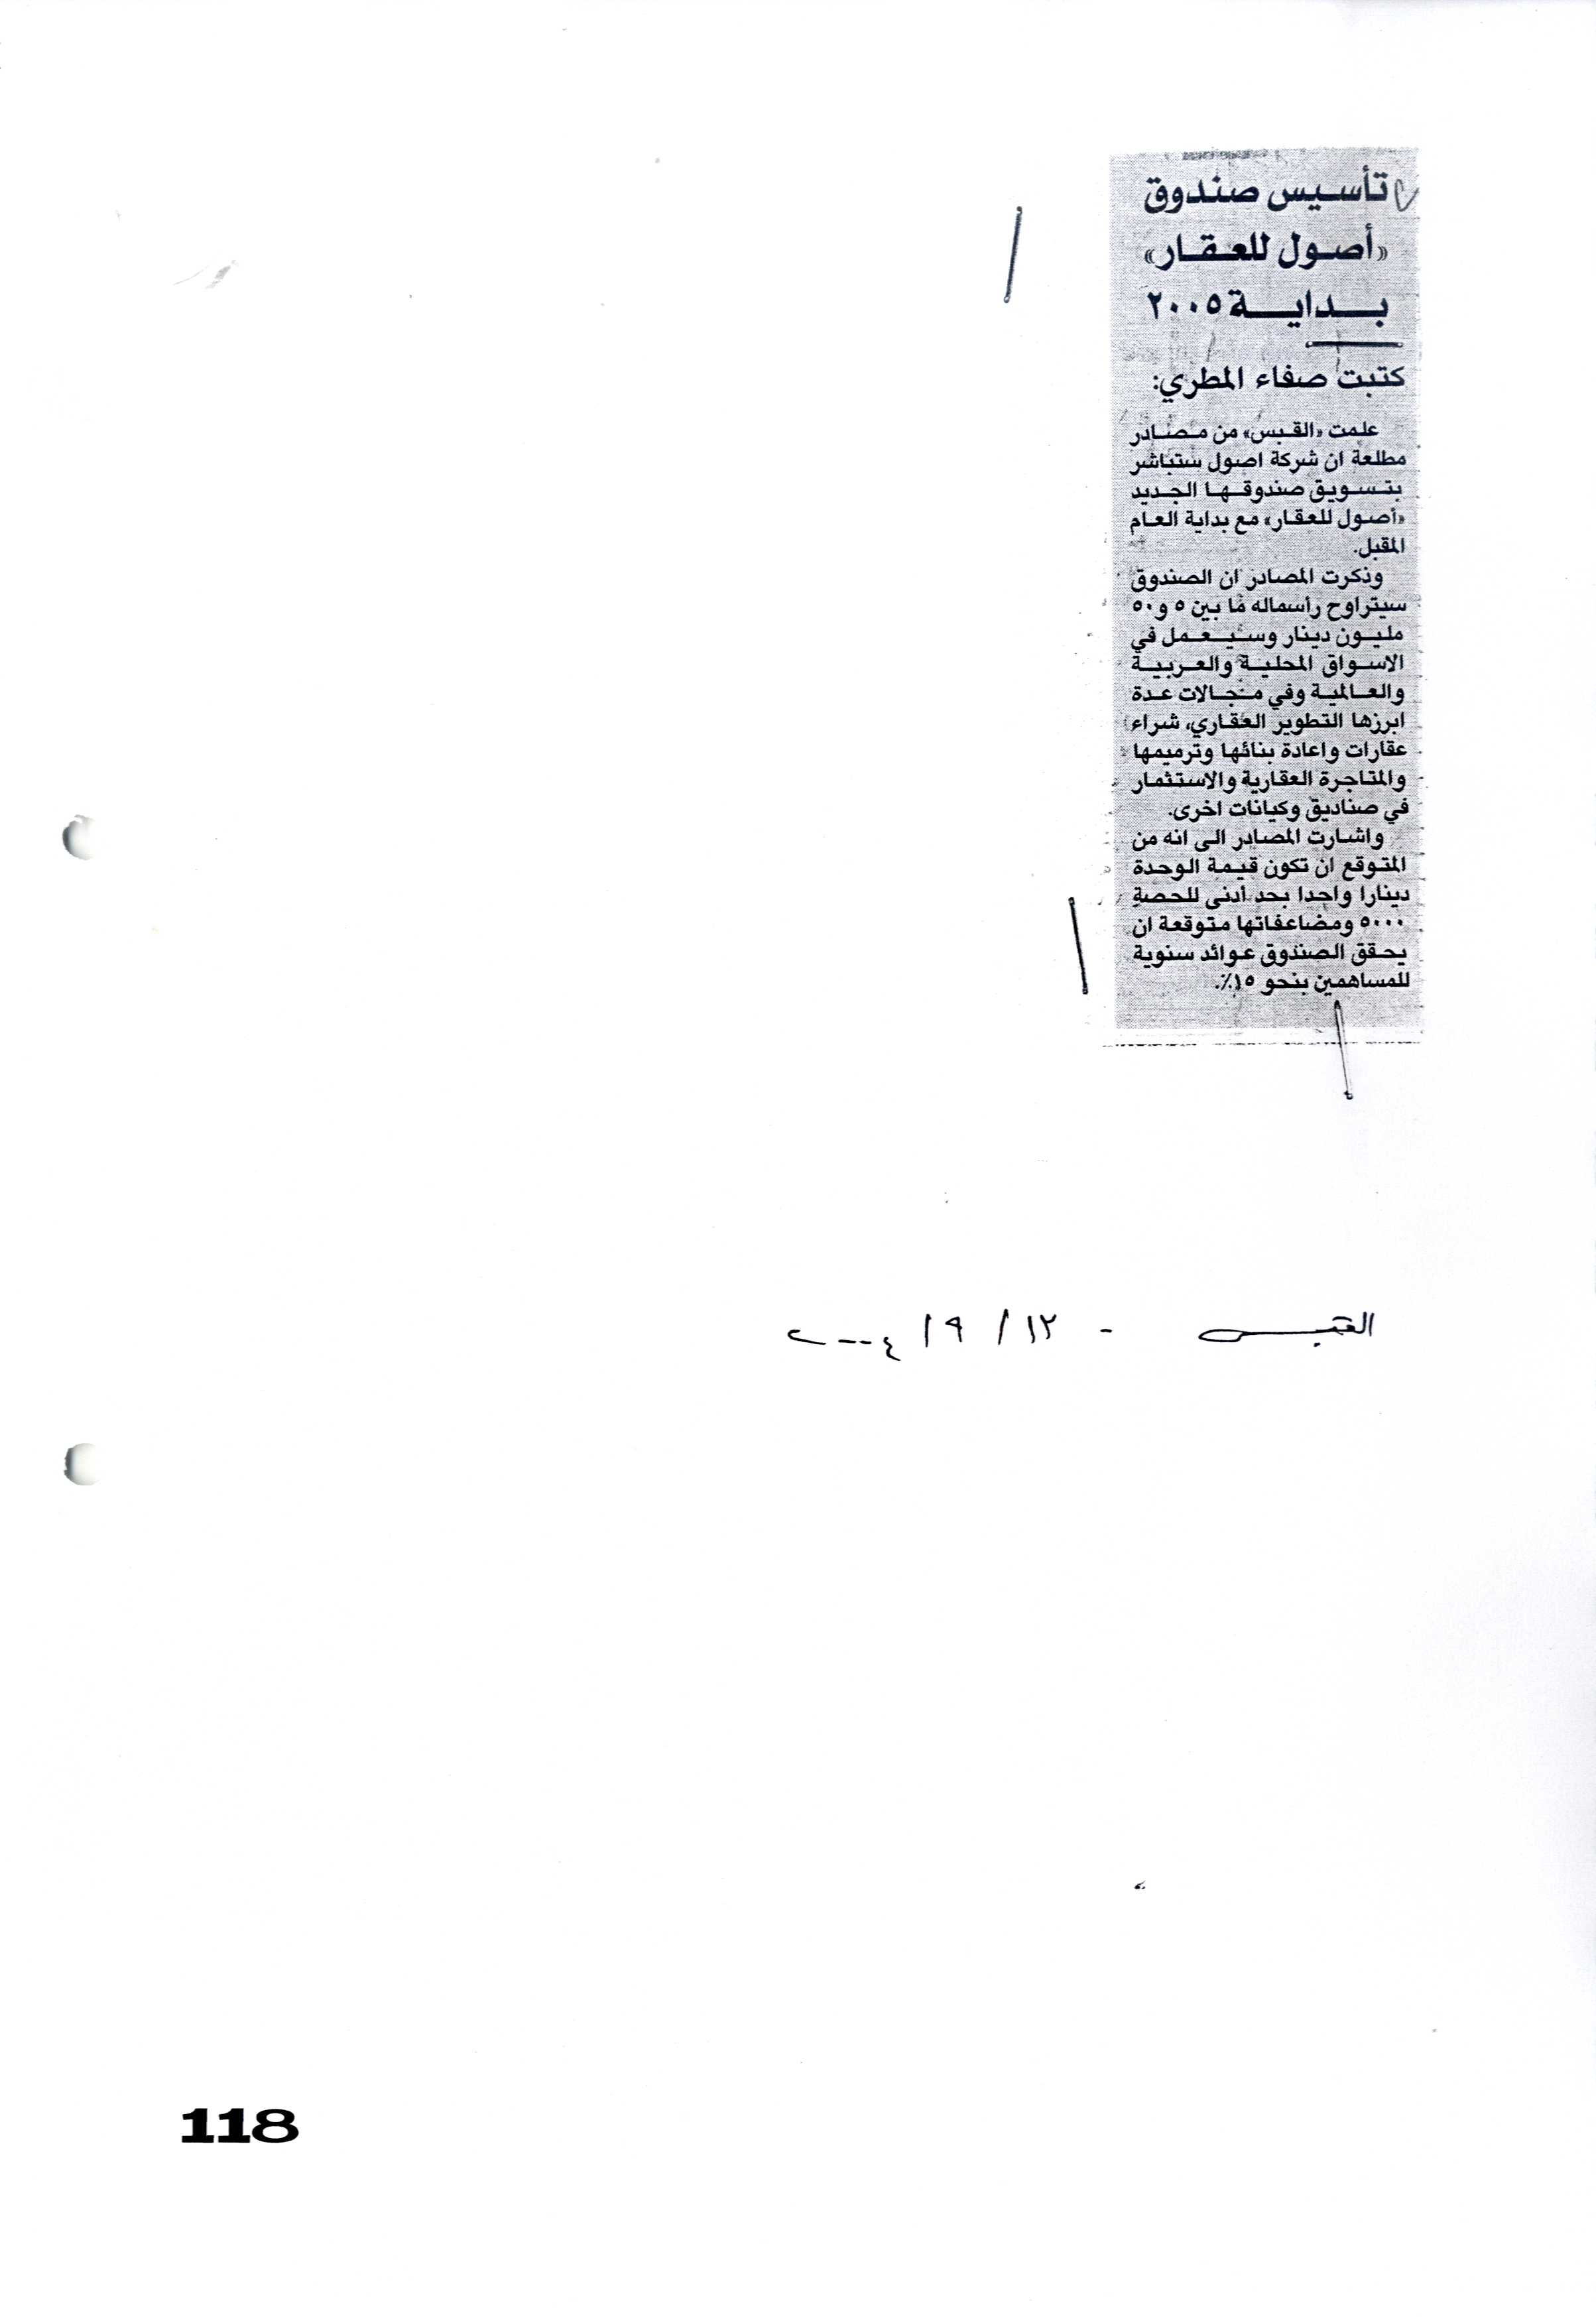 تأسيس صندوق
«أصول للعقار»
بداية ٢٠٠٥
كتبت صفاء المطري:
علمت «القبس» من مصادر
مطلعة ان شركة اصول ستباشر
بتسويق صندوقها الجديد
«أصول للعقار» مع بداية العام
المقبل.
وذكرت المصادر ان الصندوق
سيتراوح رأسماله ما بين ٥ و٥٠
مليون دينار وسيعمل في
الاسواق المحلية والعربية
والعالمية وفي مجالات عدة
ابرزها التطوير العقاري، شراء
عقارات واعادة بنائها وترميمها
والمتاجرة العقارية والاستثمار
في صناديق وكيانات اخرى.
واشارت المصادر الى انه من
المتوقع ان تكون قيمة الوحدة
دينارا واحدا بحد أدنى للحصة
٥٠٠٠ ومضاعفاتها متوقعة ان
يحقق الصندوق عوائد سنوية
للمساهمين بنحو ١٥٪.
القبس - ١٢ / ٩ / ٢٠٠٤
118